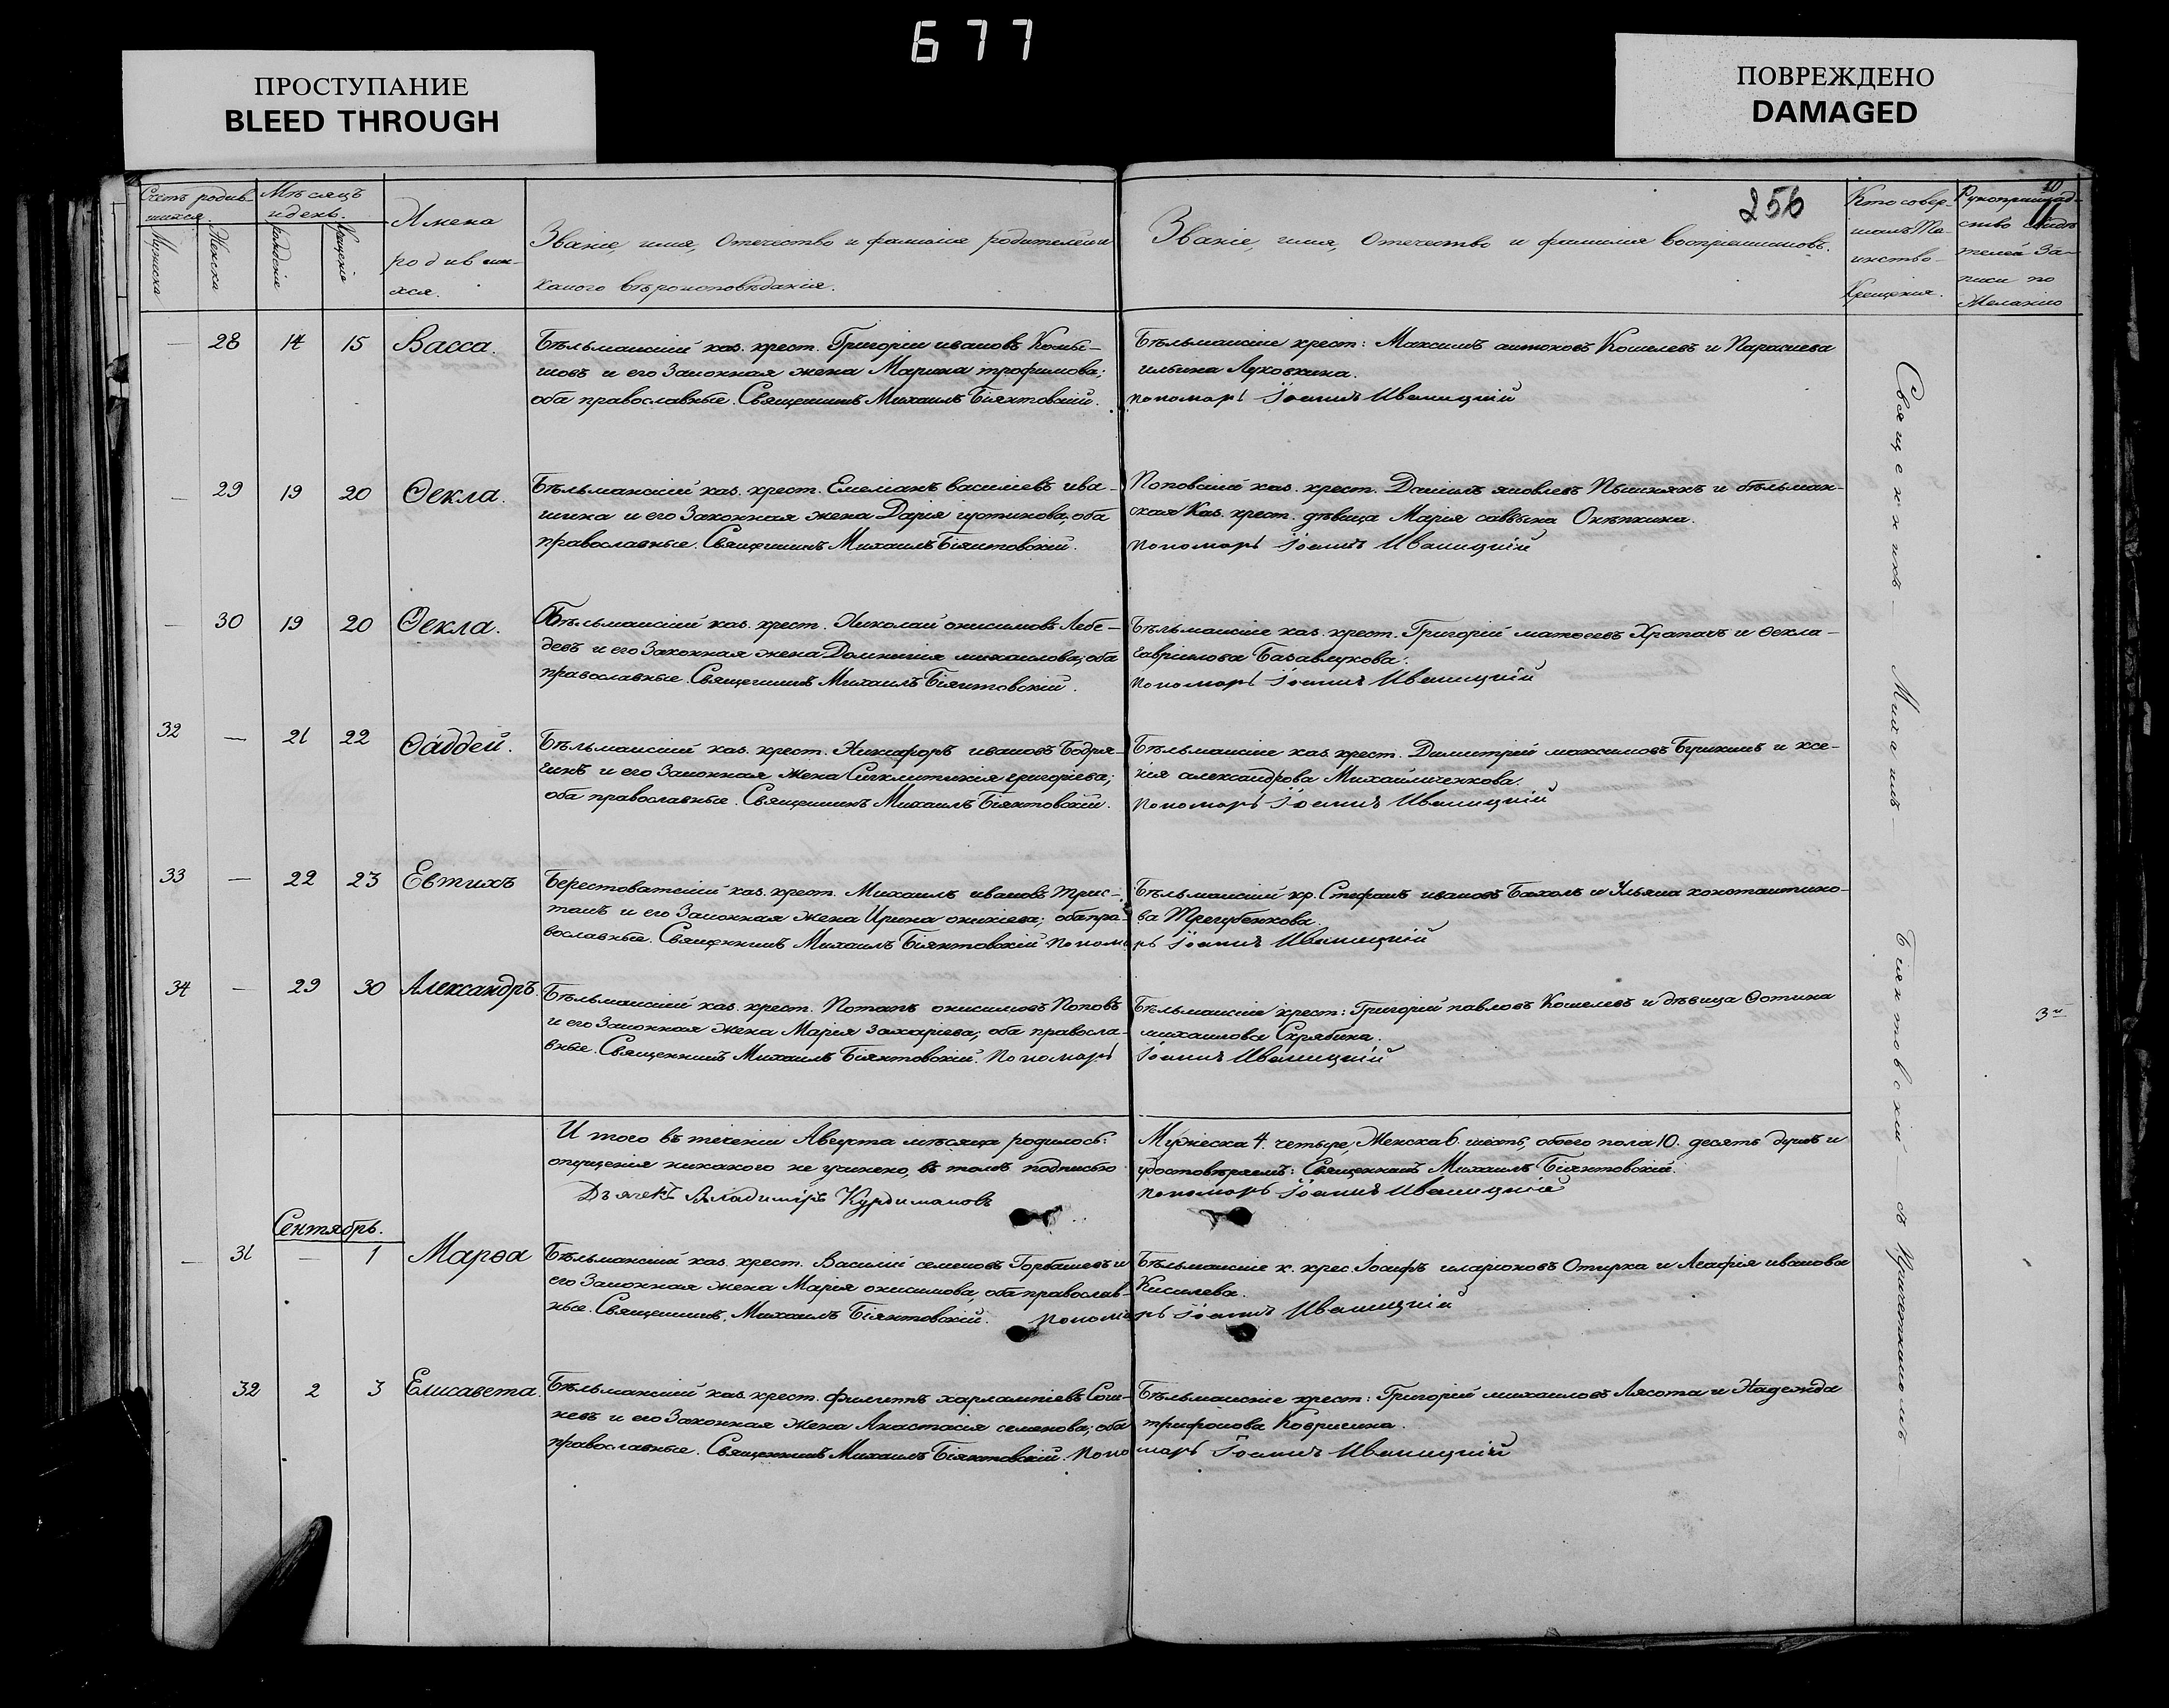 677
ПРОСТУПАНИЕ
BLEED THROUGH
ПОВРЕЖДЕНО
DAMAGED
Счетъ родив-
шихся.
Мѣсяцъ
и день.
Имена
родивши-
хся.
Званіе, имя, Отечество и фамилія родителей и
какого вѣроисповѣданія.
Мужеска
Женска
рожденіе
Крещеніе
256
Званіе, имя, Отечество и фамилія воспріемниковъ.
Кто совер-
шалъ Та-
инство
Крещенія.
10
Рукоприклад-
ство
телей За-
писи по
Желанію
11
28 14 15 Васса.
Бѣльманскій каз. крест. Григорій ивановъ Комы-
шовъ и его Законная жена Марина трофимова;
оба православные. Священникъ Михаилъ Біянтовскій.
Бѣльманскіе крест: Максимъ антоновъ Кошелевъ и Параскева
ильина Луковкина.
пономарь Іоаннъ Иваницкій
29 19 20 Ѳекла.
Бѣльманскій каз. крест. Емеліанъ василіевъ ива-
шина и его Законная жена Дарія иустинова; оба
православные. Священникъ Михаилъ Біянтовскій.
Поповскій каз. крест. Даніилъ яковлевъ Пышнякъ и бѣльман-
ская Каз. крест. дѣвица Марія саввина
пономарь Іоаннъ Иваницкій
30 19 20 Ѳекла.
Бѣльманскій каз. крест. Николай онисимовъ Лебе-
девъ и его Законная жена Домникія михаилова; оба
православные. Священникъ Михаилъ Біянтовскій.
Бѣльманскіе каз. крест. Григорій матѳеевъ Храпачъ и ѳекла
гавріилова Базавлукова.
пономарь Іоаннъ Иваницкій
32 — 21 22 Ѳаддей.
Бѣльманскій каз. крест. Никифоръ ивановъ Бодря-
гинъ и его Законная жена Сигклитикія григоріева;
оба православные. Священникъ Михаилъ Біянтовскій.
Бѣльманскіе каз. крест. Димитрій максимовъ Бушкинъ и ксе-
нія александрова Михайличенкова.
пономарь Іоаннъ Иваницкій
33 — 22 23 Евтихъ
Берестоватскій каз. крест. Михаилъ ивановъ Трис-
танъ и его Законная жена Ирина оникіева; оба пра-
вославные. Священникъ Михаилъ Біянтовскій пономарь Іоаннъ Иваницкій
Бѣльманскій кр. Стефанъ ивановъ Бахолъ и Ульяна константино-
ва Трегубенкова.
34 — 29 30 Александръ.
Бѣльманскій каз. крест. Потапъ онисимовъ Поповъ
и его Законная жена Марія захаріева; оба правосла-
вные. Священникъ Михаилъ Біянтовскій. Пономарь
Бѣльманскіе крест: Григорій павловъ Кошелевъ и дѣвица Ѳотина
михаилова Скрябина.
Іоаннъ Иваницкій
3й
И того въ теченіи Августа мѣсяца родилось:
опущенія никакого не учинено, въ томъ подписью
Дьячекъ Владиміръ Курдимановъ
Мужеска 4. четыре, Женска 6. шесть, обоего пола 10. десять душъ и
удостовѣряемъ: Священникъ Михаилъ Біянтовскій.
пономарь Іоаннъ Иваницкій
Сентябрь.
31 — 1 Марѳа
Бѣльманскій каз. крест. Василій семеновъ Горбашевъ и
его Законная жена Марія онисимова, оба православ-
ные. Священникъ, Михаилъ Біянтовскій. пономарь Іоаннъ Иваницкій
Бѣльманскіе к. крес. Іосифъ иларіоновъ Отирка и Агафія иванова
Киселева.
32 2 3 Елисавета.
Бѣльманскій каз. крест. филиппъ харлампіевъ Соги-
невъ и его Законная Жена Анастасія семенова; оба
православные. Священникъ Михаилъ Біянтовскій. Пономарь Іоаннъ Иваницкій
Бѣльманскіе крест: Григорій михаиловъ Лясота и Надежда
трифонова Ковригина.
Священникъ Михаилъ Біянтовскій съ Причетникомъ